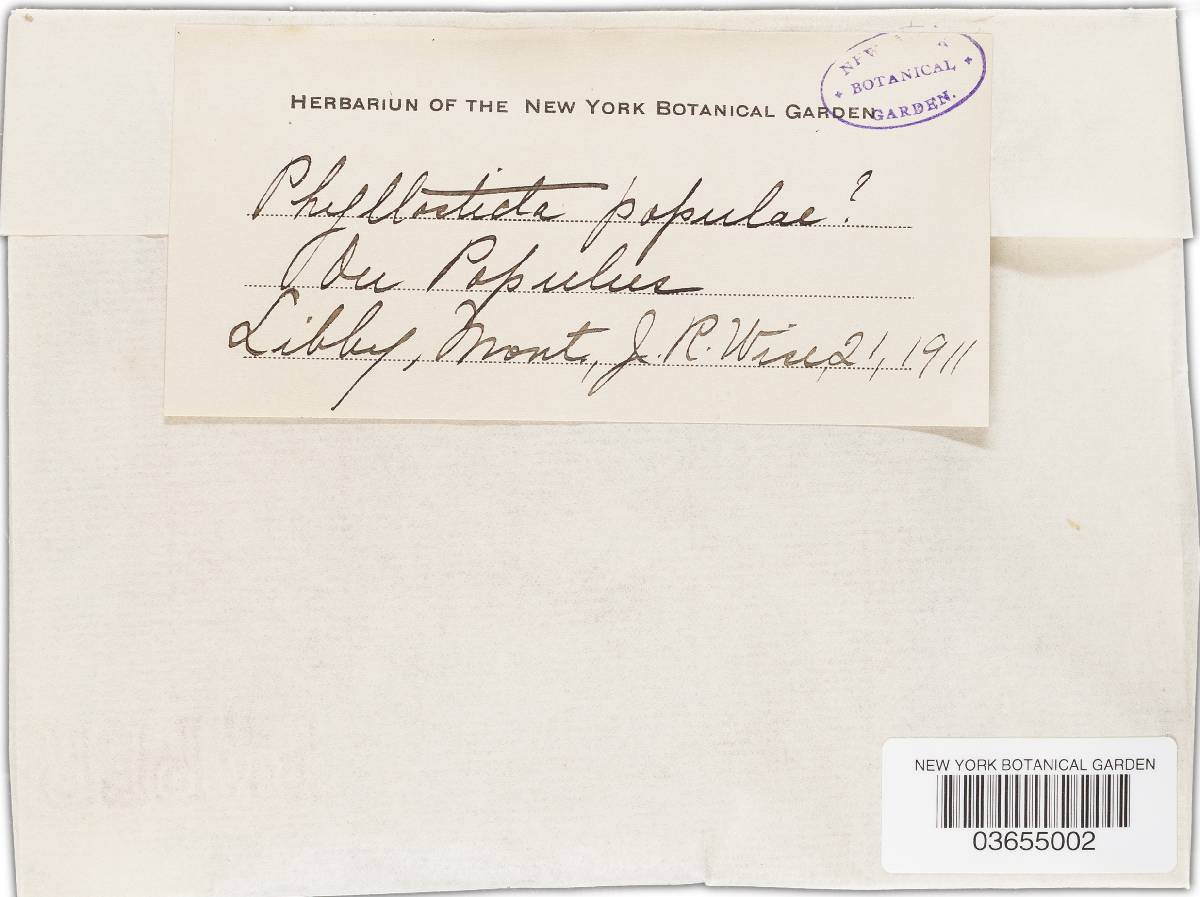 HERBARIUN OF THE NEW YORK BOTANICAL GARDEN
NEW YORK
BOTANICAL
GARDEN.
Phyllosticta populae?
On Populus
Libby, Mont, J. R. Wise, 21, 1911
NEW YORK BOTANICAL GARDEN
03655002